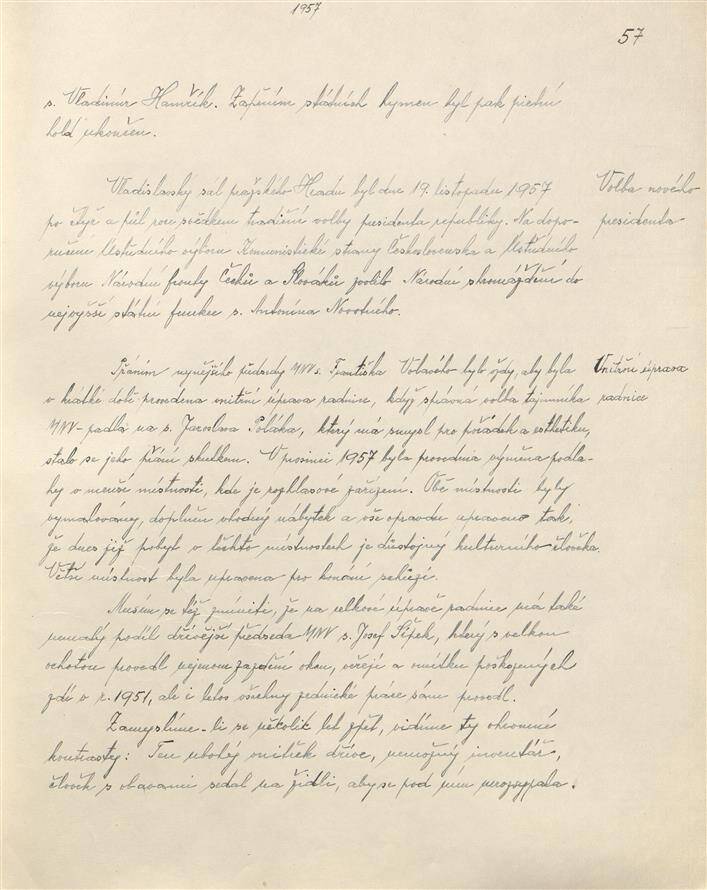 1957
57
s. Vladimír Hamřík. Zapěním státních hymen byl pak pietní
hold ukončen.
Vladislavský sál pražského Hradu byl dne 19. listopadu 1957
Volba nového
po čtyř a půl roce svědkem tradiční volby presidenta republiky. Na dopo-
presidenta
ručení Ústředního výboru Komunistické strany Československa a Ústředního
výboru Národní fronty Čechů a Slováků zvolilo Národní shromáždění do
nejvyšší státní funkce s. Antonína Novotného.
Přáním nynějšího předsedy MNV s. Františka Volavého bylo vždy, aby byla
Vnitřní úprava
v krátké době provedena vnitřní úprava radnice, když správná volba tajemníka
radnice
MNV padla na s. Jaroslava Poláka, který má smysl pro pořádek a esthetiku,
stalo se jeho přání skutkem. V prosinci 1957 byla provedena výměna podla-
hy v menší místnosti, kde je rozhlasové zařízení. Obě místnosti byly
vymalovány, doplněn vhodný nábytek a vše opravdu upraveno tak,
že dnes již pobyt v těchto místnostech je důstojný kulturního člověka.
Větší místnost byla upravena pro konání schůzí.
Musím se též zmíniti, že na celkové úpravě radnice má také
nemalý podíl dřívější předseda MNV s. Josef Šípek, který s velkou
ochotou provedl nejenom zazdění oken, veřejí a omítku poškozených
zdí v r. 1951, ale i letos všechny zednické práce sám provedl.
Zamyslíme-li se několik let zpět, vidíme ty ohromné
kontrasty: Ten ubohý vnitřek dříve, nemožný inventář,
člověk s obavami sedal na židli, aby se pod ním nerozsypala.